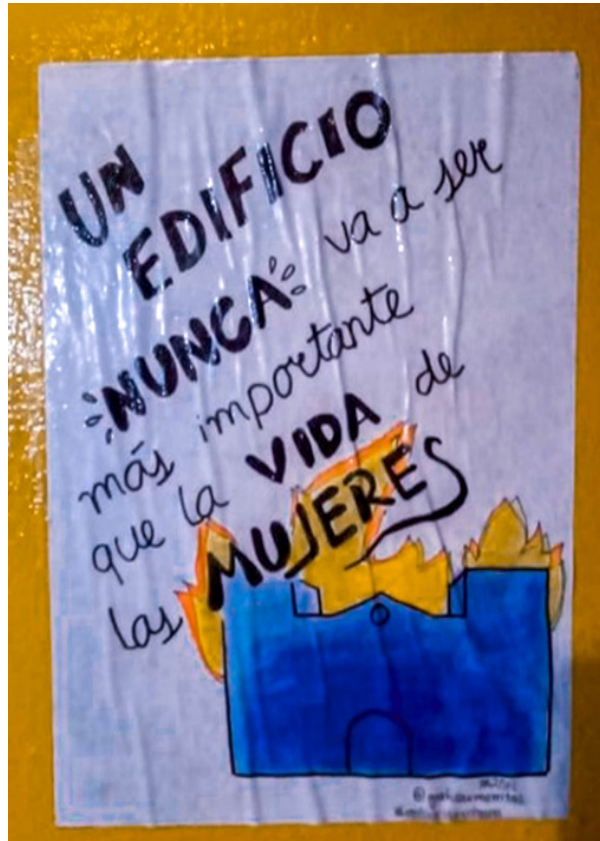 UN
EDIFICIO
NUNCA va a ser
más importante
que la VIDA de
las MUJERES